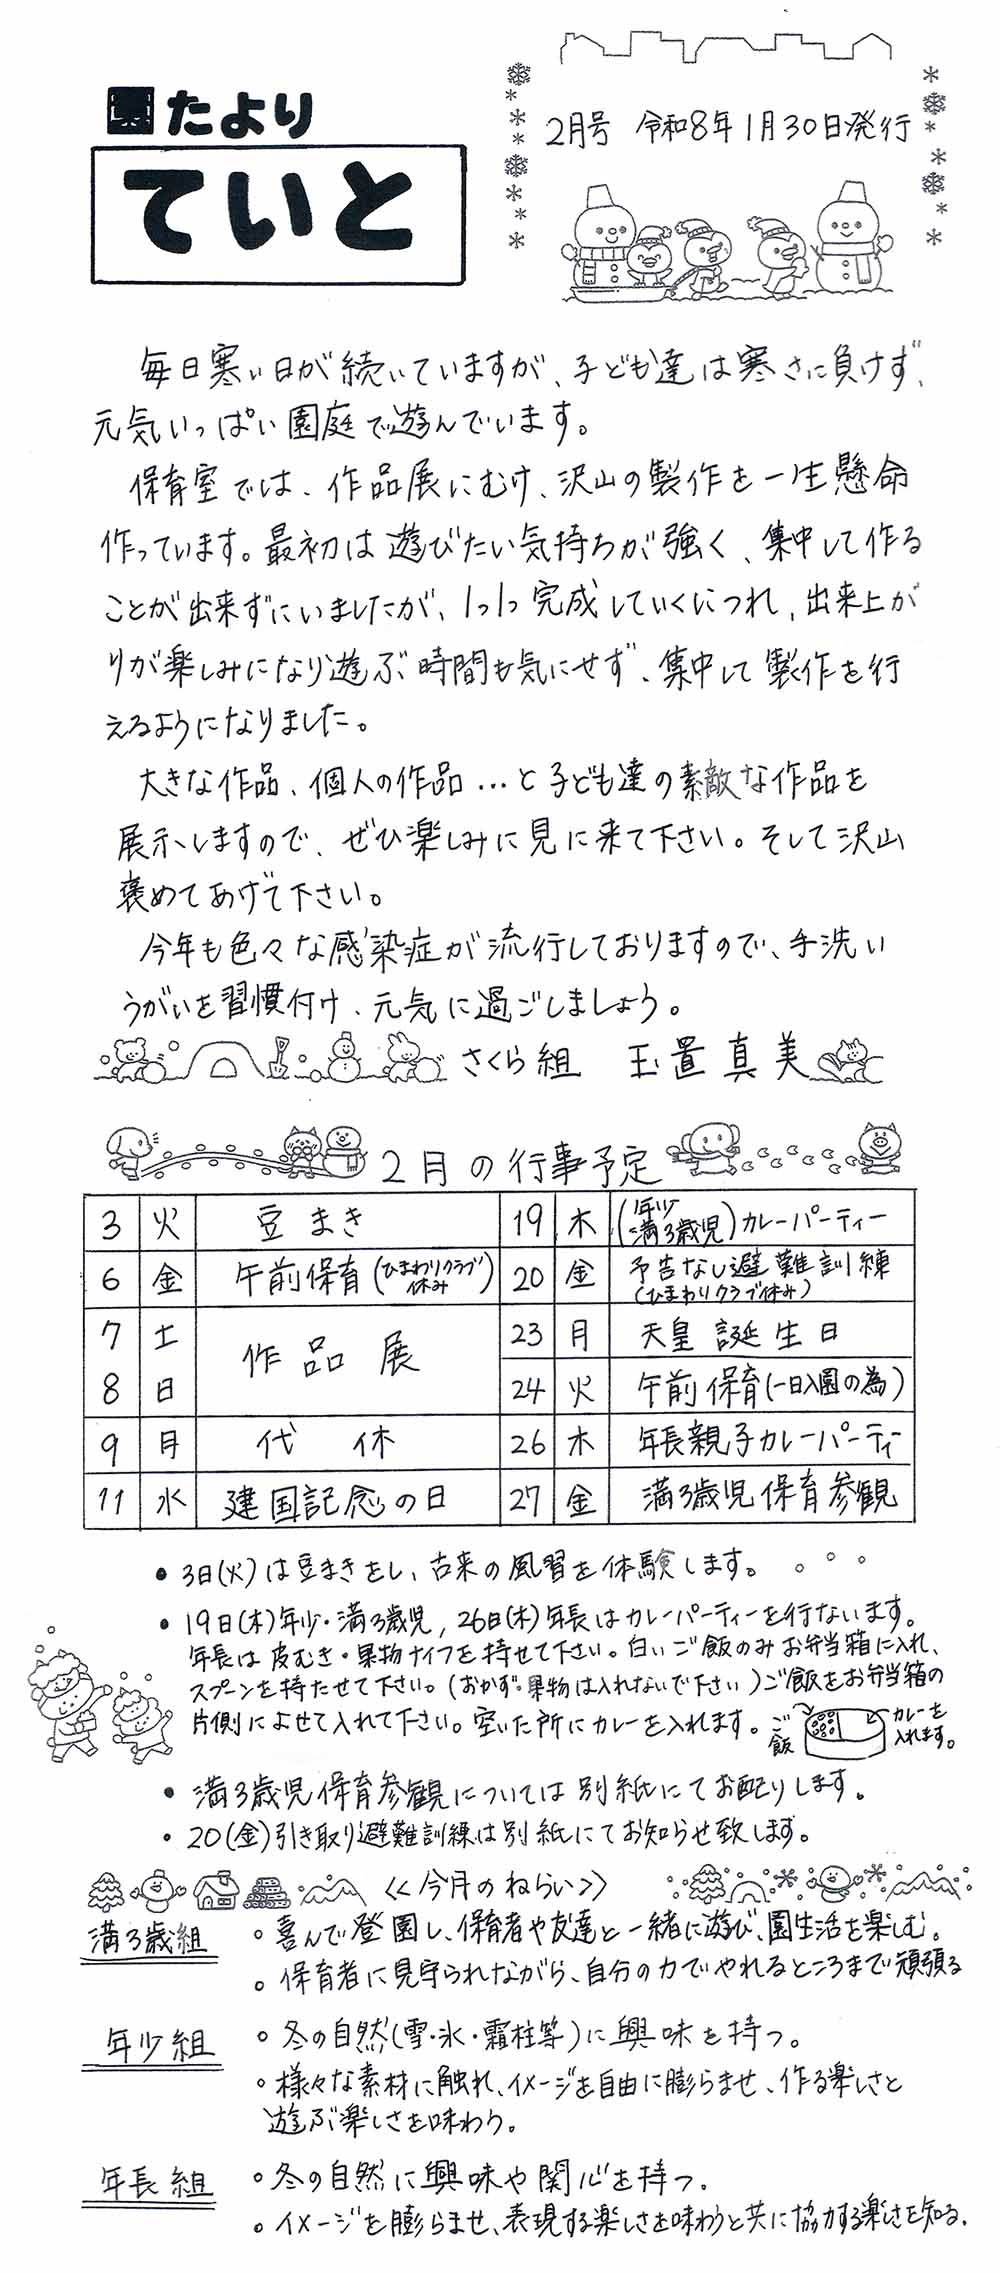 園たより
ていと
2月号 令和8年1月30日発行
毎日寒い日が続いていますが、子ども達は寒さに負けず、
元気いっぱい園庭で遊んでいます。
保育室では、作品展にむけ、沢山の製作を一生懸命
作っています。最初は遊びたい気持ちが強く、集中して作る
ことが出来ずにいましたが、1つ1つ完成していくにつれ、出来上が
りが楽しみになり遊ぶ時間も気にせず、集中して製作を行
えるようになりました。
大きな作品、個人の作品…と子ども達の素敵な作品を
展示しますので、ぜひ楽しみに見に来て下さい。そして沢山
褒めてあげて下さい。
今年も色々な感染症が流行しておりますので、手洗い
うがいを習慣付け、元気に過ごしましょう。
さくら組 玉置真美
2月の行事予定
3 火 豆まき
6 金 午前保育(ひまわりクラブ休み)
7 土
8 日
作品展
9 月 代休
11 水 建国記念の日
19 木 (年少 満3歳児)カレーパーティー
20 金 予告なし避難訓練
(ひまわりクラブ休み)
23 月 天皇誕生日
24 火 午前保育(一日入園の為)
26 木 年長親子カレーパーティー
27 金 満3歳児保育参観
• 3日(火)は豆まきをし、古来の風習を体験します。
• 19日(木)年少・満3歳児, 26日(木)年長はカレーパーティーを行ないます。
年長は皮むき・果物ナイフを持せて下さい。白いご飯のみお弁当箱に入れ、
スプーンを持たせて下さい。(おかず・果物は入れないで下さい)ご飯をお弁当箱の
片側によせて入れて下さい。空いた所にカレーを入れます。
ご飯
カレーを
入れます。
• 満3歳児保育参観については別紙にてお配りします。
• 20(金)引き取り避難訓練は別紙にてお知らせ致します。
≪今月のねらい≫
満3歳組
◦ 喜んで登園し、保育者や友達と一緒に遊び、園生活を楽しむ。
◦ 保育者に見守られながら、自分の力でやれるところまで頑張る
年少組
◦ 冬の自然(雪・氷・霜柱等)に興味を持つ。
◦ 様々な素材に触れ、イメージを自由に膨らませ、作る楽しさと
遊ぶ楽しさを味わう。
年長組
◦ 冬の自然に興味や関心を持つ。
◦ イメージを膨らませ、表現する楽しさを味わうと共に協力する楽しさを知る.